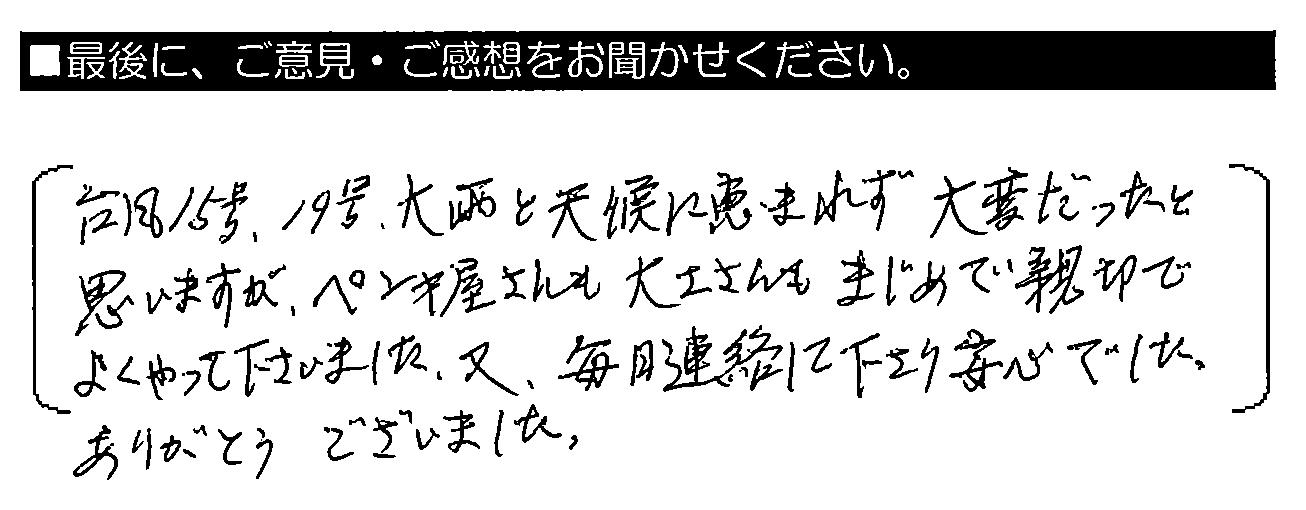 ■最後に、ご意見・ご感想をお聞かせください。
台風15号、19号、大雨と天候に恵まれず大変だったと
思いますが、ペンキ屋さんも大工さんもまじめで親切で
よくやって下さいました、又、毎日連絡して下さり安心でした。
ありがとうございました。